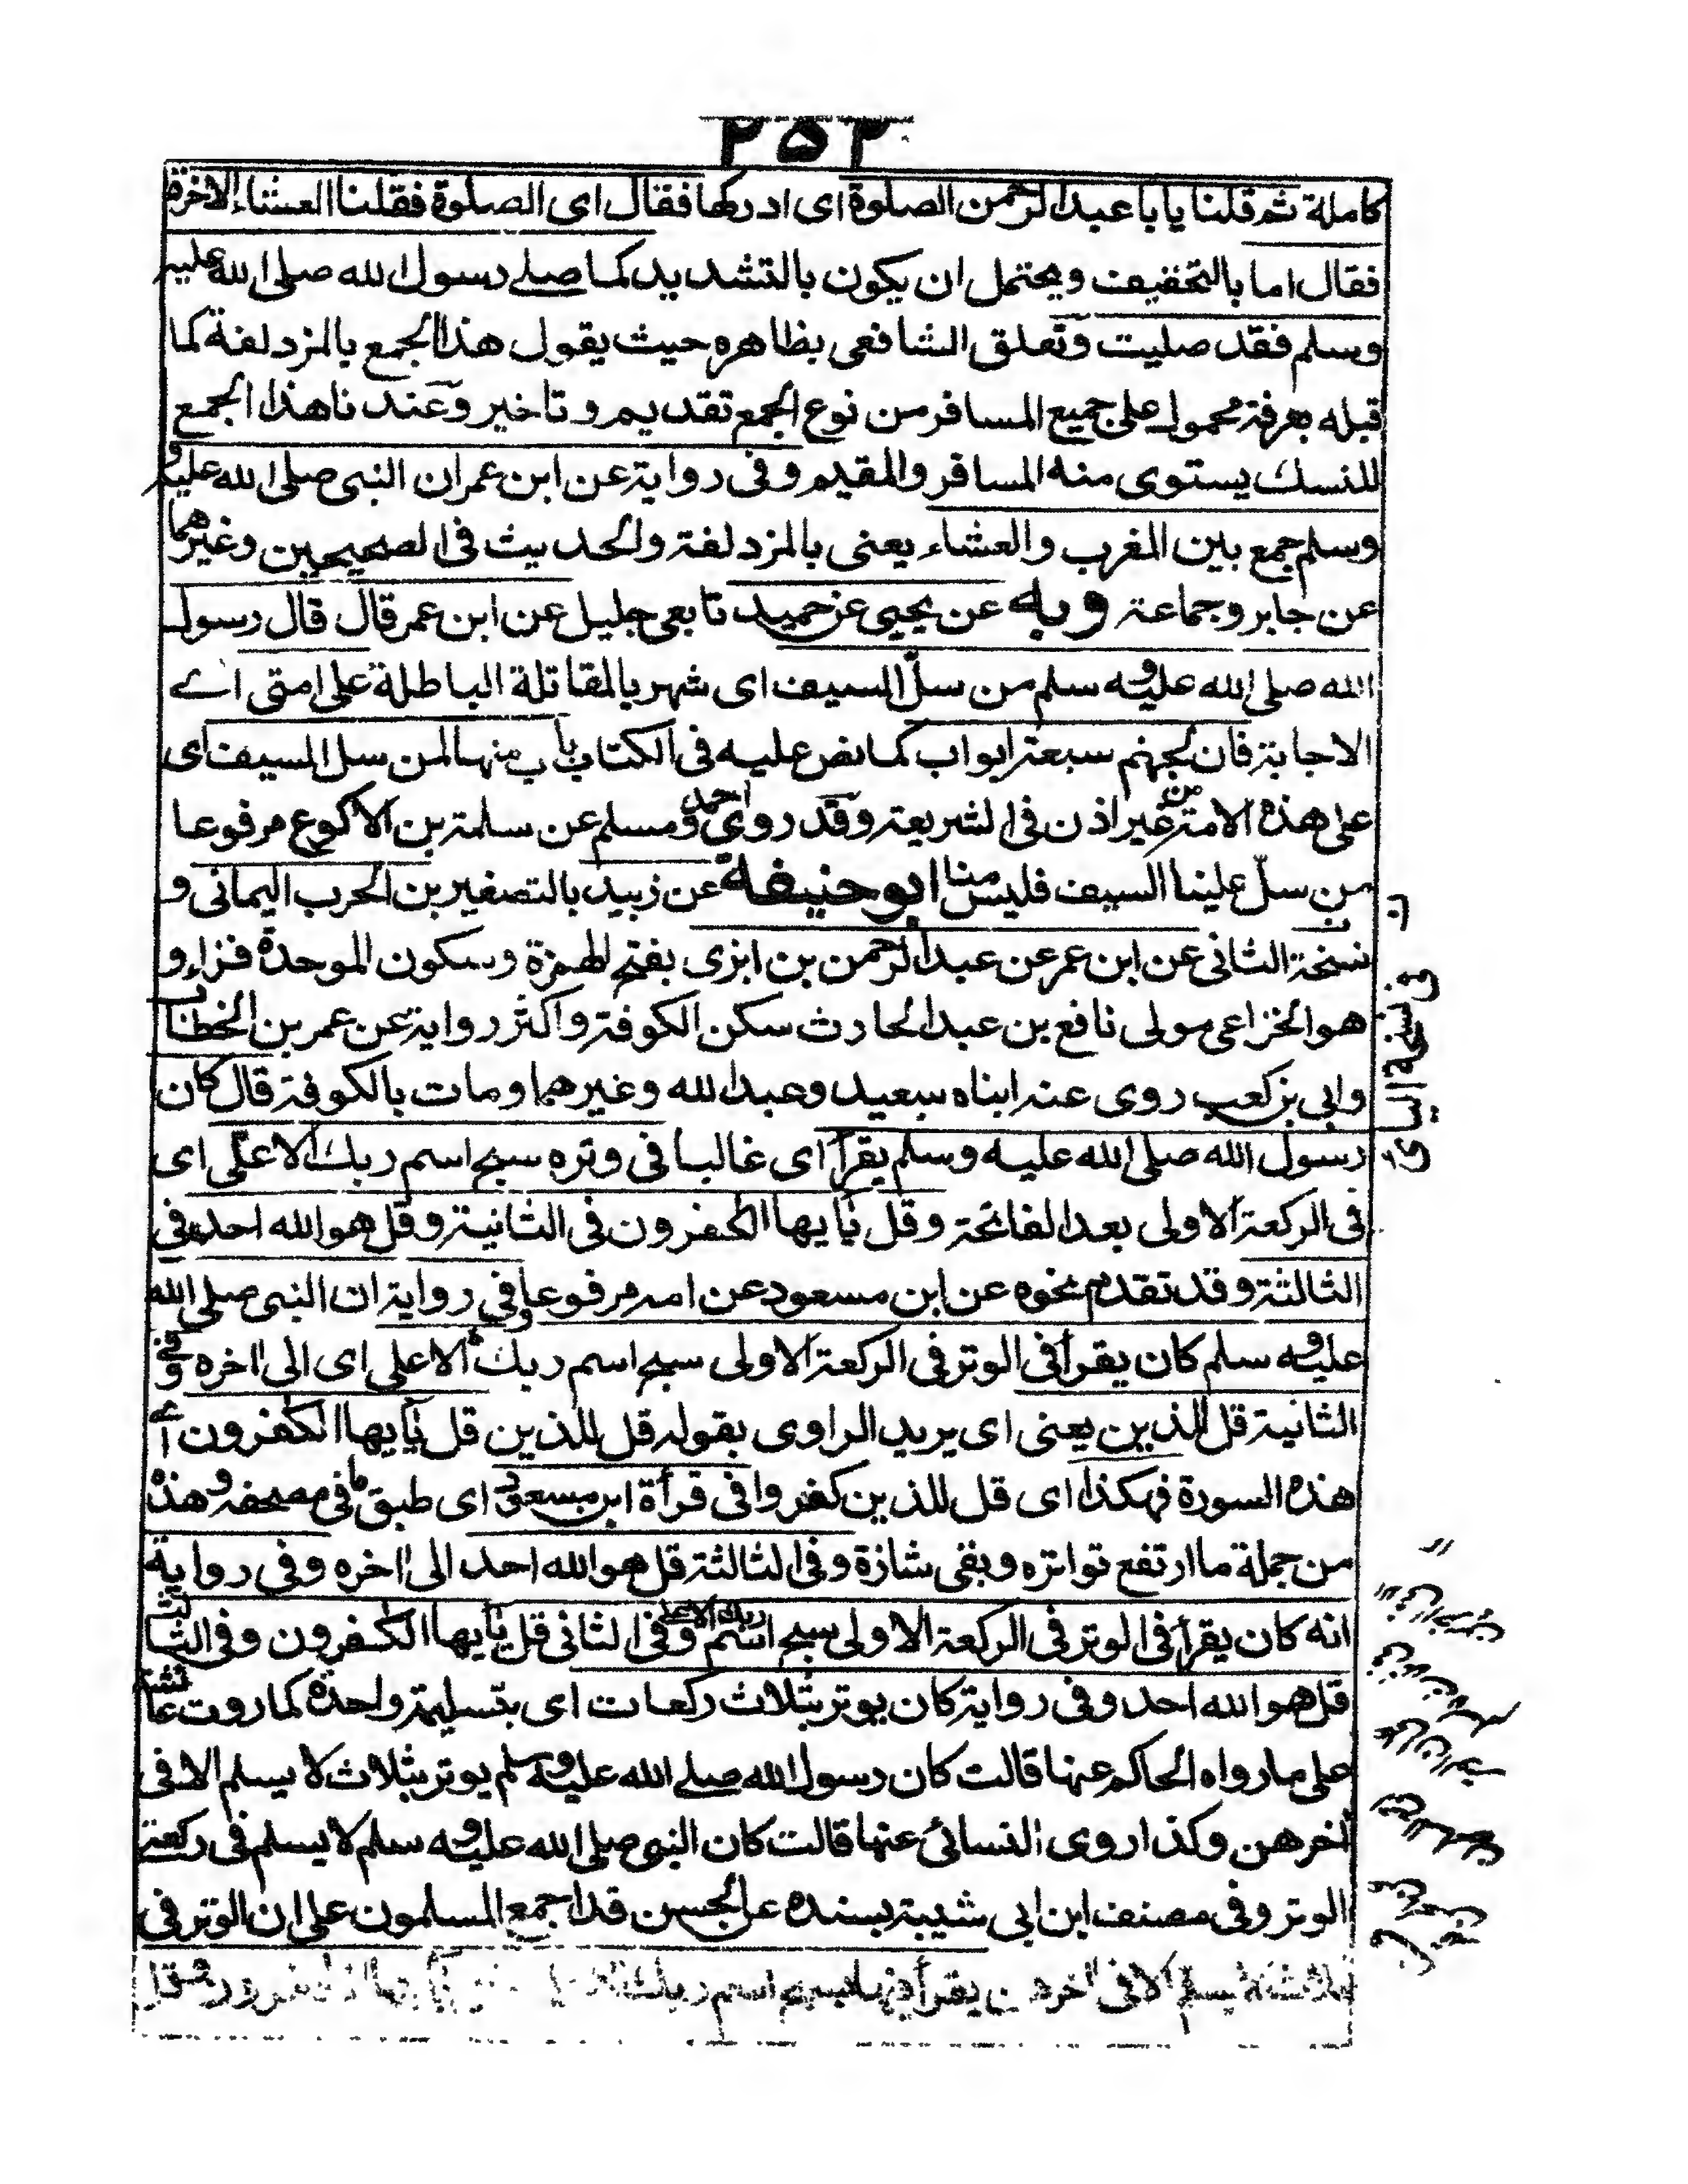 ٢٥٢
كاملة ثم قلنا يا با عبد الرحمن الصلوة اى ادركها فقال اى الصلوة فقلنا العشاء الاخرة
فقال اما بالتخفيف ويحتمل ان يكون بالتشديد كما صلے رسول الله صلى الله عليه
وسلم فقد صليت وتعلق الشافعى بظاهره حيث يقول هذا الجمع بالمزدلفة كما
قبله بعرفة محمول على جميع المسافر من نوع الجمع تقديم وتاخير وعندنا هذا الجمع
للنسك يستوى منه المسافر والمقيم وفى رواية عن ابن عمر ان النبى صلى الله عليه و
وسلم جمع بين المغرب والعشاء يعنى بالمزدلفة والحديث فى الصحيحين وغيرهما
عن جابر وجماعة وبه عن يحيى عن حميد تابعى جليل عن ابن عمر قال قال رسول
الله صلى الله عليه و سلم من سلّ السيف اى شهر بالمقاتلة الباطلة على امتى اے
الاجابة فان لجهنم سبعة ابواب كما نص عليه فى الكتاب باب منها لمن سل السيف اى
على هذه الامة من غير اذن فى الشريعة وقد روى احمد ومسلم عن سلمة بن الاكوع مرفوعا
من سلّ علينا السيف فليس منا ابو حنيفة عن زبيد بالتصغير بن الحرب اليمانى و
نسخة الثانى عن ابن عمر عن عبد الرحمن بن ابزى بفتح الهمزة وسكون الموحدة فزاء و
هو الخزاعى مولى نافع بن عبد الحارث سكن الكوفة واكثر رواية عن عمر بن الخطاب
وابى بن كعب روى عنه ابناه سعيد وعبد الله وغيرهما ومات بالكوفة قال كان
رسول الله صلى الله عليه وسلم يقرأ اى غالبا فى وتره سبح اسم ربك الاعلى اى
فى الركعة الاولى بعد الفاتحة وقل يأيها الكفرون فى الثانية وقل هو الله احد فى
الثالثة وقد تقدم نحوه عن ابن مسعود عن امه مرفوعا وفى رواية ان النبى صلى الله
عليه و سلم كان يقرأ فى الوتر فى الركعة الاولى سبح اسم ربك الاعلى اى الى اخره وفى
الثانية قل للذين يعنى اى يريد الراوى بقوله قل للذين قل يأيها الكفرون اے
هذه السورة فهكذا اى قل للذين كفروا فى قرأة ابن مسعود اى طبق ما فى مصحفه وهذه
من جملة ما ارتفع تواتره وبقى شاذة وفى الثالثة قل هو الله احد الى اخره وفى رواية
انه كان يقرأ فى الوتر فى الركعة الاولى سبح اسم ربك الاعلى وفى الثانى قل يأيها الكفرون وفى الثالثة
قل هو الله احد وفى رواية كان يوتر بثلاث ركعات اى بتسليمة واحدة كما روت عائشة
على ما رواه الحاكم عنها قالت كان رسول الله صلے الله عليه وسلم يوتر بثلاث لا يسلم الا فى
اخرهن وكذا روى النسائى عنها قالت كان النبى صلى الله عليه و سلم لا يسلم فى ركعة
الوتر وفى مصنف ابن ابى شيبة بسنده عن الحسن قد اجمع المسلمون على ان الوتر فى
لا يسلم الا فى اخرهن يقرأ فيها سبح اسم ربك
ن
فى نسخة اليامى